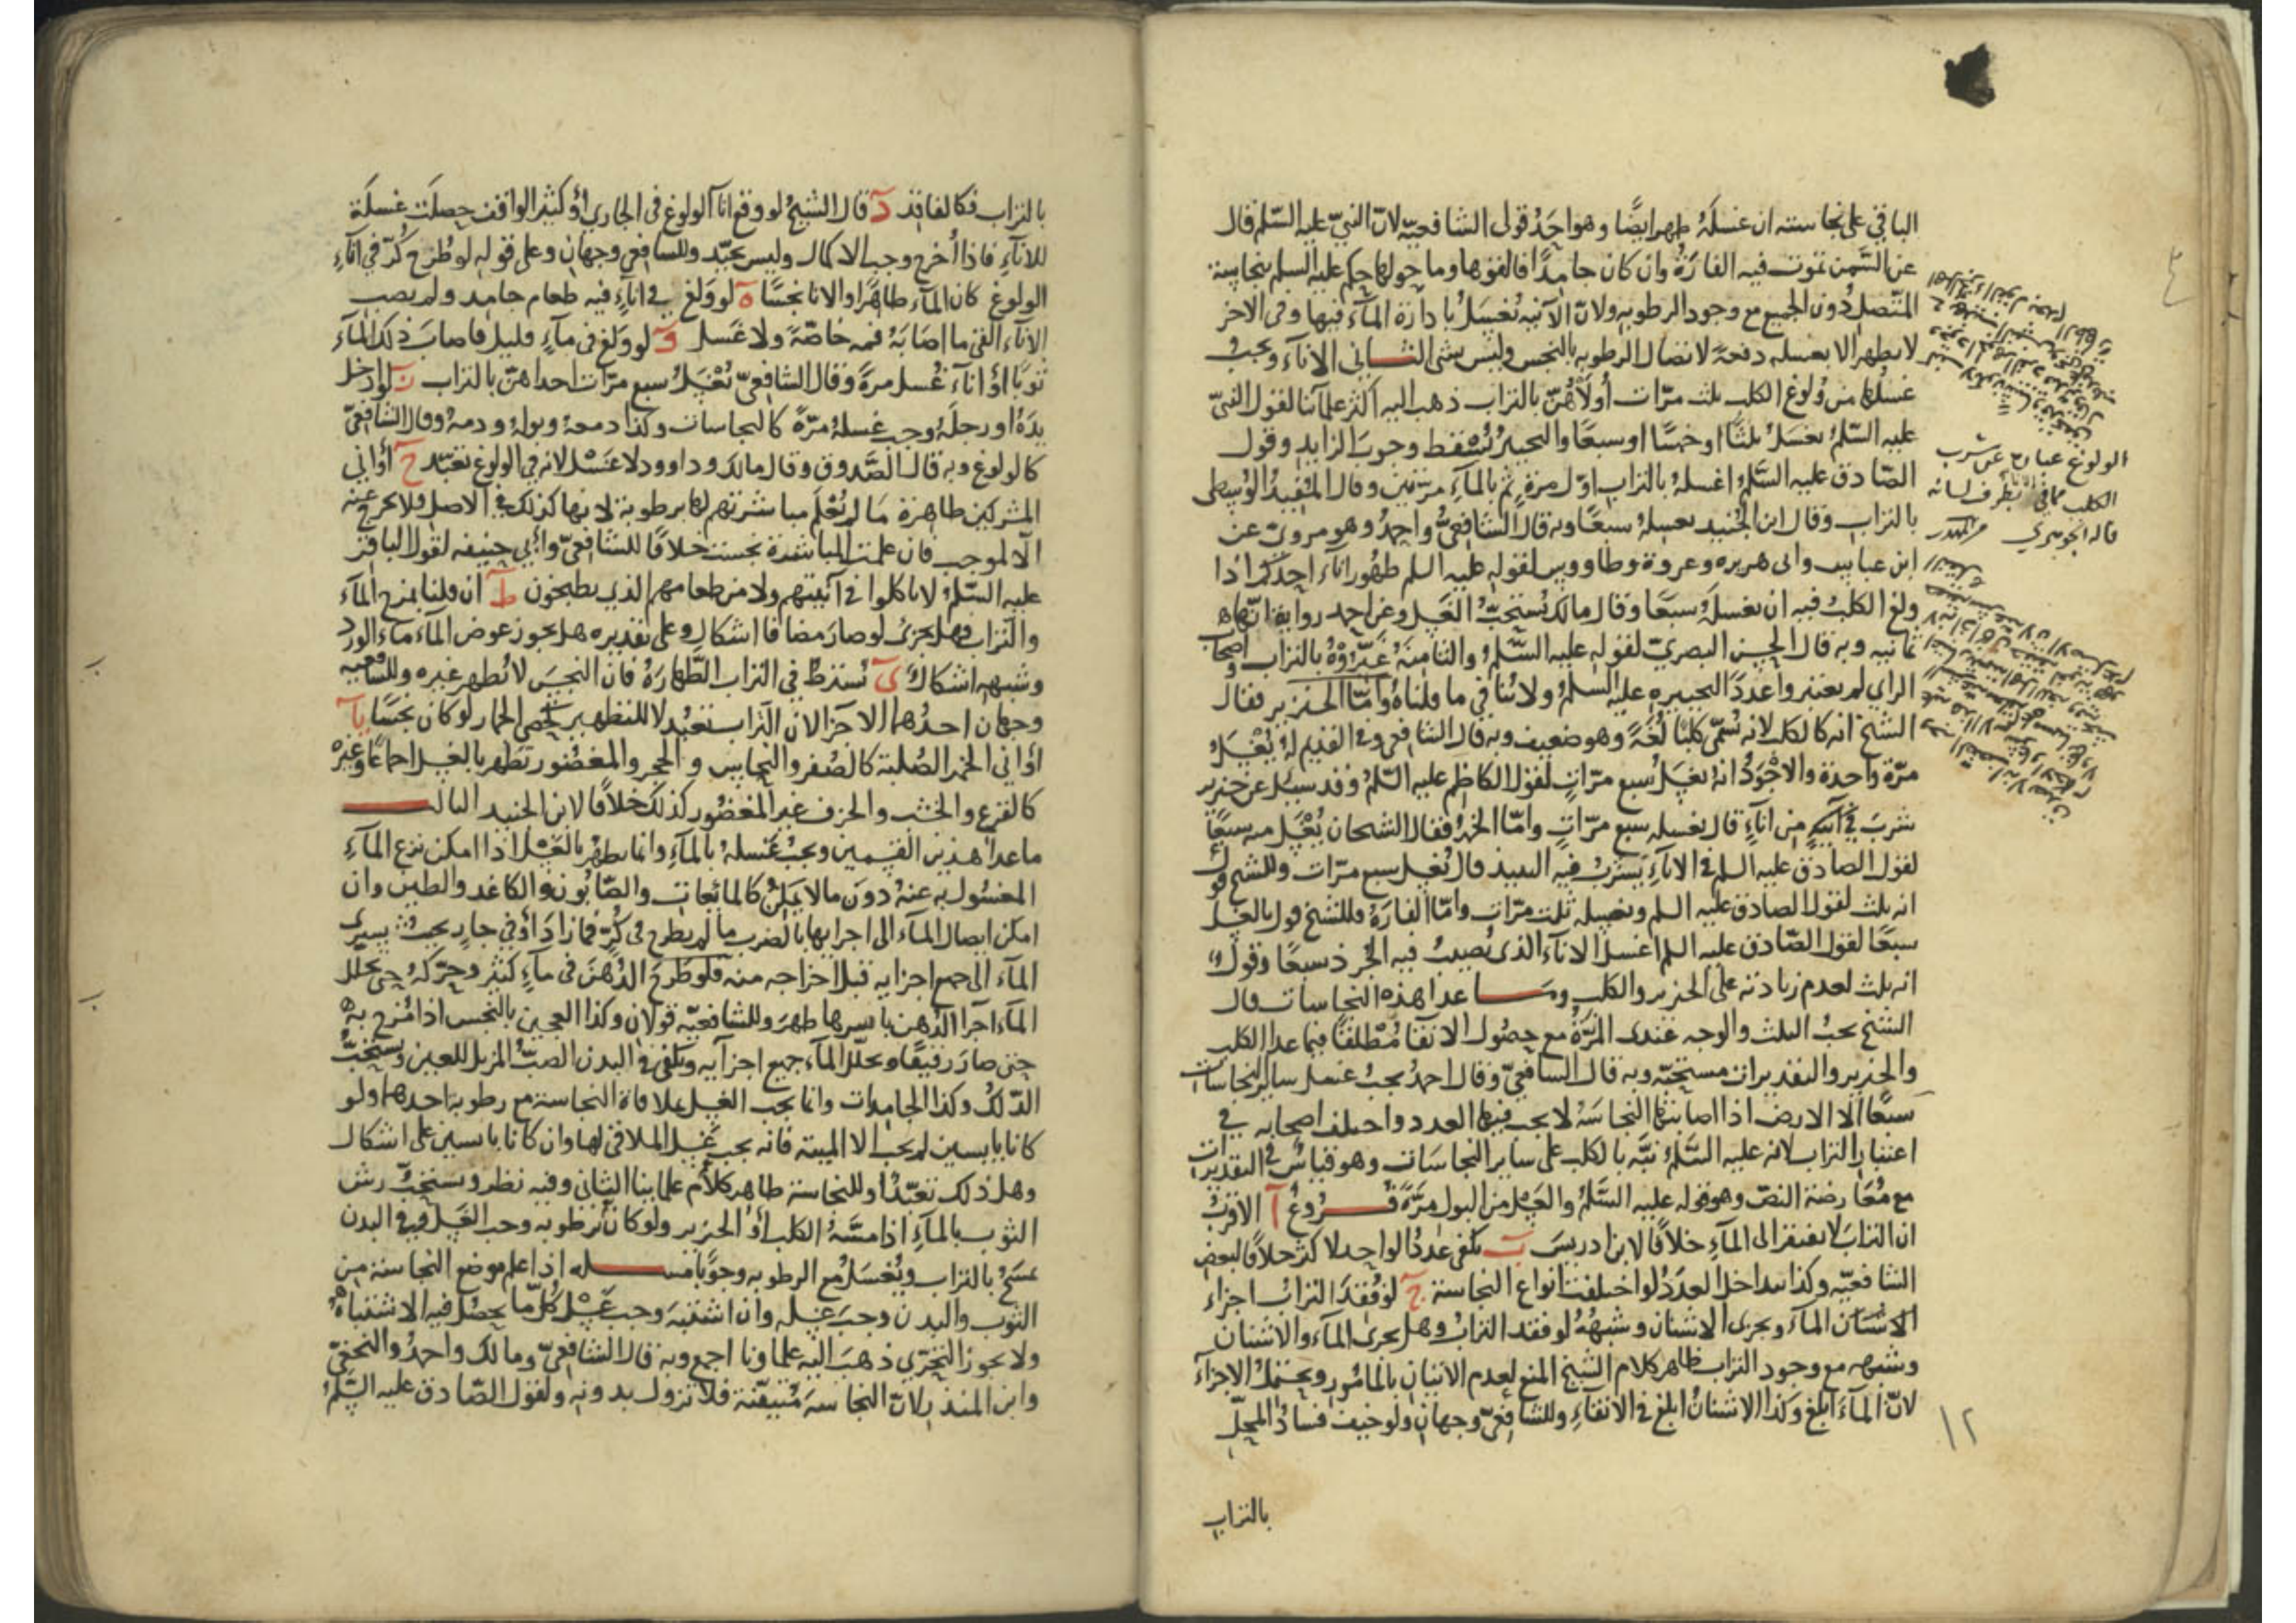 الباقي على نجاسته ان غسله طهر ايضًا وهو احد قولى الشافعيّه لانّ النبيّ عليه السّلم قال
عن السّمن تموت فيه الفارة وان كان جامدًا فالقوها وما حولها حكم عليه السلم بنجاسة
المتّصل دون الجميع مع وجود الرطوبه ولانّ الآنيه تغسل بادارة المآء فيها وفى الاخر
لا يطهر الا بغسله دفعة لاتصال الرطوبه بالنجس وليس بشى الثـــانى الاناء ويجب
غسلها من ولوغ الكلب ثلث مرّات أولاهنّ بالتراب ذهب اليه اكثر علمآئنا لقول النبىّ
عليه السّلم يغسل ثلثًا او خمسًا او سبعًا والتخيير يُسقط وجوب الزايد وقول
الصّادق عليه السّلم اغسله بالتراب اوّل مرة ثم بالمآء مرتين وقال المفيد الوسطى
بالتراب وقال ابن الجنيد يغسله سبعًا وبه قال الشافعىّ واحمد وهو مروىّ عن
ابن عباس وابى هريره وعروة وطاووس لقوله عليه السلم طهور اناء احدكم اذا
ولغ الكلب فيه ان يغسله سبعًا وقال مالك يستحبّ الغسل وعن احمد رواية انّها
ثمانيه وبه قال الحسن البصرىّ لقوله عليه السّلم والثامنة عفّروه بالتراب واصحاب
الراى لم يعتبروا عددًا لتخييره عليه السلم ولا ينافي ما قلناه وامّا الخنزير فقال
الشيخ انه كالكلب لانه يُسمّى كلبًا لُغةً وهو ضعيف وبه قال الشافعى وفى القديم له يُغسل
مرّة واحدة والاجود انه يغسل سبع مرّات لقول الكاظم عليه السّلم وقد سيل عن خنزير
شرب في آنية من اناءٍ قال يغسله سبع مرّاتٍ وامّا الخمر فقال الشيخان يُغسل منه سبعًا
لقول الصادق عليه السلم في الاناءِ يشرب فيه النبيذ قال يُغسل سبع مرّات وللشيخ قول
انه ثلث لقول الصادق عليه السلم ويغسله ثلث مرّات وامّا الفارة فللشيخ قول بالغسل
سبعًا لقول الصّادق عليه السلم اغسل الاناء الذى تُصيب فيه الجرذ سبعًا وقول
انه ثلث لعدم زيادته على الخنزير والكلب ومـــا عدا هذه النجاسات قال
الشيخ يجبُ الثلث والوجه عندى المرّة مع حصول الانقا مُطلقًا فيما عدا الكلب
والخنزير والتقديرات مستحبّه وبه قال الشافعىّ وقال احمد يجبُ غسل ساير النجاسات
سبعًا الّا الارض اذا اصابتها النجاسة لا يجب فيها العدد واختلف اصحابه في
اعتبار التراب لانه عليه السّلم نبّه بالكلب على ساير النجاسات وهو قياسٌ في التقديرات
مع مُعارضة النصّ وهو قوله عليه السّلم والغسل من البول مرّةً فـــروع آ الاقرب
ان الترابَ لا يفتقر الى المآءِ خلافًا لابن ادريس ب يكفى عددُ الواحد للاكثر خلافًا لبعض
الشافعيّه وكذا يتداخل العدد لو اختلفت انواع النجاسة ج لو فُقد التراب اجزاء
الاشنان المآء ويجزى الاشنان وشبهه لو فقد التراب وهل يجرى المآء والاشنان
وشبهه مع وجود التراب ظاهر كلام الشيخ المنع لعدم الاتيان بالمامور ويحتمل الاجزآء
لانّ المآءَ ابلغ وكذا الاشنانُ ابلغ في الانقاءِ وللشافعىّ وجهانِ ولو خيف فساد المحلّ
بالتراب
الولوغ عبارة عن شرب
الكلب مما في بطرف لسانه
قاله الجوهري
١٢
بالتراب فكالفاقد د قال الشيخ لو وقع انآ الولوغ فى الجارى أو كثير الواقف حصلت غسلة
للانآءِ فاذا أخرج وجب الاكمال وليس بجيّد وللشافعى وجهان وعلى قوله لو طُرح كُرّ فى انآءِ
الولوغ كان المآء طاهرًا والانا نجسًا ه لو ولغ في اناءٍ فيه طعام جامد ولم يصب
الانآء القى ما اصابَهُ فمه خاصّةً ولا غسل و لو ولغ فى مآءٍ قليل فاصاب ذلك المآء
ثوبًا اوْ انآءً غُسل مرةً وقال الشافعىّ يُغسل سبع مرّات احداهنّ بالتراب ز لو ادخل
يدَهُ او رجلَهُ وجب غسلهُ مرّةً كالنجاسات وكذا دمعهُ وبولهُ ودمهُ وقال الشافعىّ
كالولوغ وبه قال الصّدوق وقال مالك وداوود لا غسل لانه في الولوغ تعبّد ح أوانى
المشركين طاهرة مَا لم يُعْلَم مباشرتهم لها برطوبة لانها كذلك في الاصل فلا يخرج عنه
الّا لموجب فان علمت المباشرة نجست خلافًا للشافعىّ وأبى حنيفه لقول الباقر
عليه السّلم لا تاكلوا في آنيتهم ولا من طعامهم الذى يطبخون ط ان قلنا بمزج المآء
والتراب فهل يجزىُ لو صارَ مضافًا اشكال وعلى تقديره هل يجوز عوض المآءِ ماء الورد
وشبهه اشكالٌ ى يُشترطُ في التراب الطّهارة فان النجس لا يُطهر غيره وللشافعيه
وجهان احدُهما الاجزا لان التراب تعبُّد لا للتطهير كحصى الجمار لو كان نجسًا يآ
أوانى الخمر الصُلبة كالصُفر والنحاس والحجر والمغضُور تطهر بالغسل اجماعًا وغيره
كالقرع والخشب والخزف غير المغضُور كذلك خلافًا لابن الجنيد الثالـــث
ما عدا هذين القسمين ويجبُ غسلهُ بالمآءِ وانما يطهر بالغسل اذا امكن نزع المآءِ
المغسُول به عنهُ دون مالا يمكنُ كالمائعات والصّابون والكاغد والطين وان
امكن ايصال المآء الى اجزايها بالضرب ما لم يطرح فى كُرٍّ فما زاد أوْ في جارٍ بحيث يسرى
المآء الى جميع اجزايه قبل اخراجه منه فلو طرحَ الدُهنَ فى مآءٍ كثير وحرّكهُ حتى تخلل
المآء اجزآ الدُهن باسرها طهرَ وللشافعيّه قولان وكذا العجين بالنجس اذا مُزج به
حتى صارَ رقيقًا وتخلّل المآء جميع اجزآيه ويكفى في البدن الصبّ المزيل للعين ويستحبّ
الدّلك وكذا الجامدات وانما يجب الغسل بملاقاة النجاسة مع رطوبة احدهما ولو
كانا يابسين لم يجب الا الميتة فانه يجب غسل الملاقى لها وان كانا يابسين على اشكال
وهل ذلك تعبّدًا وللنجاسة ظاهر كلام علماينا الثانى وفيه نظر ويستحبّ رش
الثوب بالمآءِ اذا مسّهُ الكلب أو الخنزير ولو كان برطوبه وجب الغسل وفى البدن
يمسحُ بالتراب ويُغسلُ مع الرطوبه وجوبًا مســـله اذا علم موضع النجاسة من
الثوب والبدن وجبَ غسله وان اشتبهَ وجب غسل كُلّ ما يحصل فيه الاشتباه
ولا يجوز التحرّى ذهب اليه علماونا اجمع وبه قال الشافعىّ ومالك واحمدُ والنخعىّ
وابن المنذر لانّ النجاسة مُتيقّنة فلا تزول بدونه ولقول الصّادق عليه السّلم